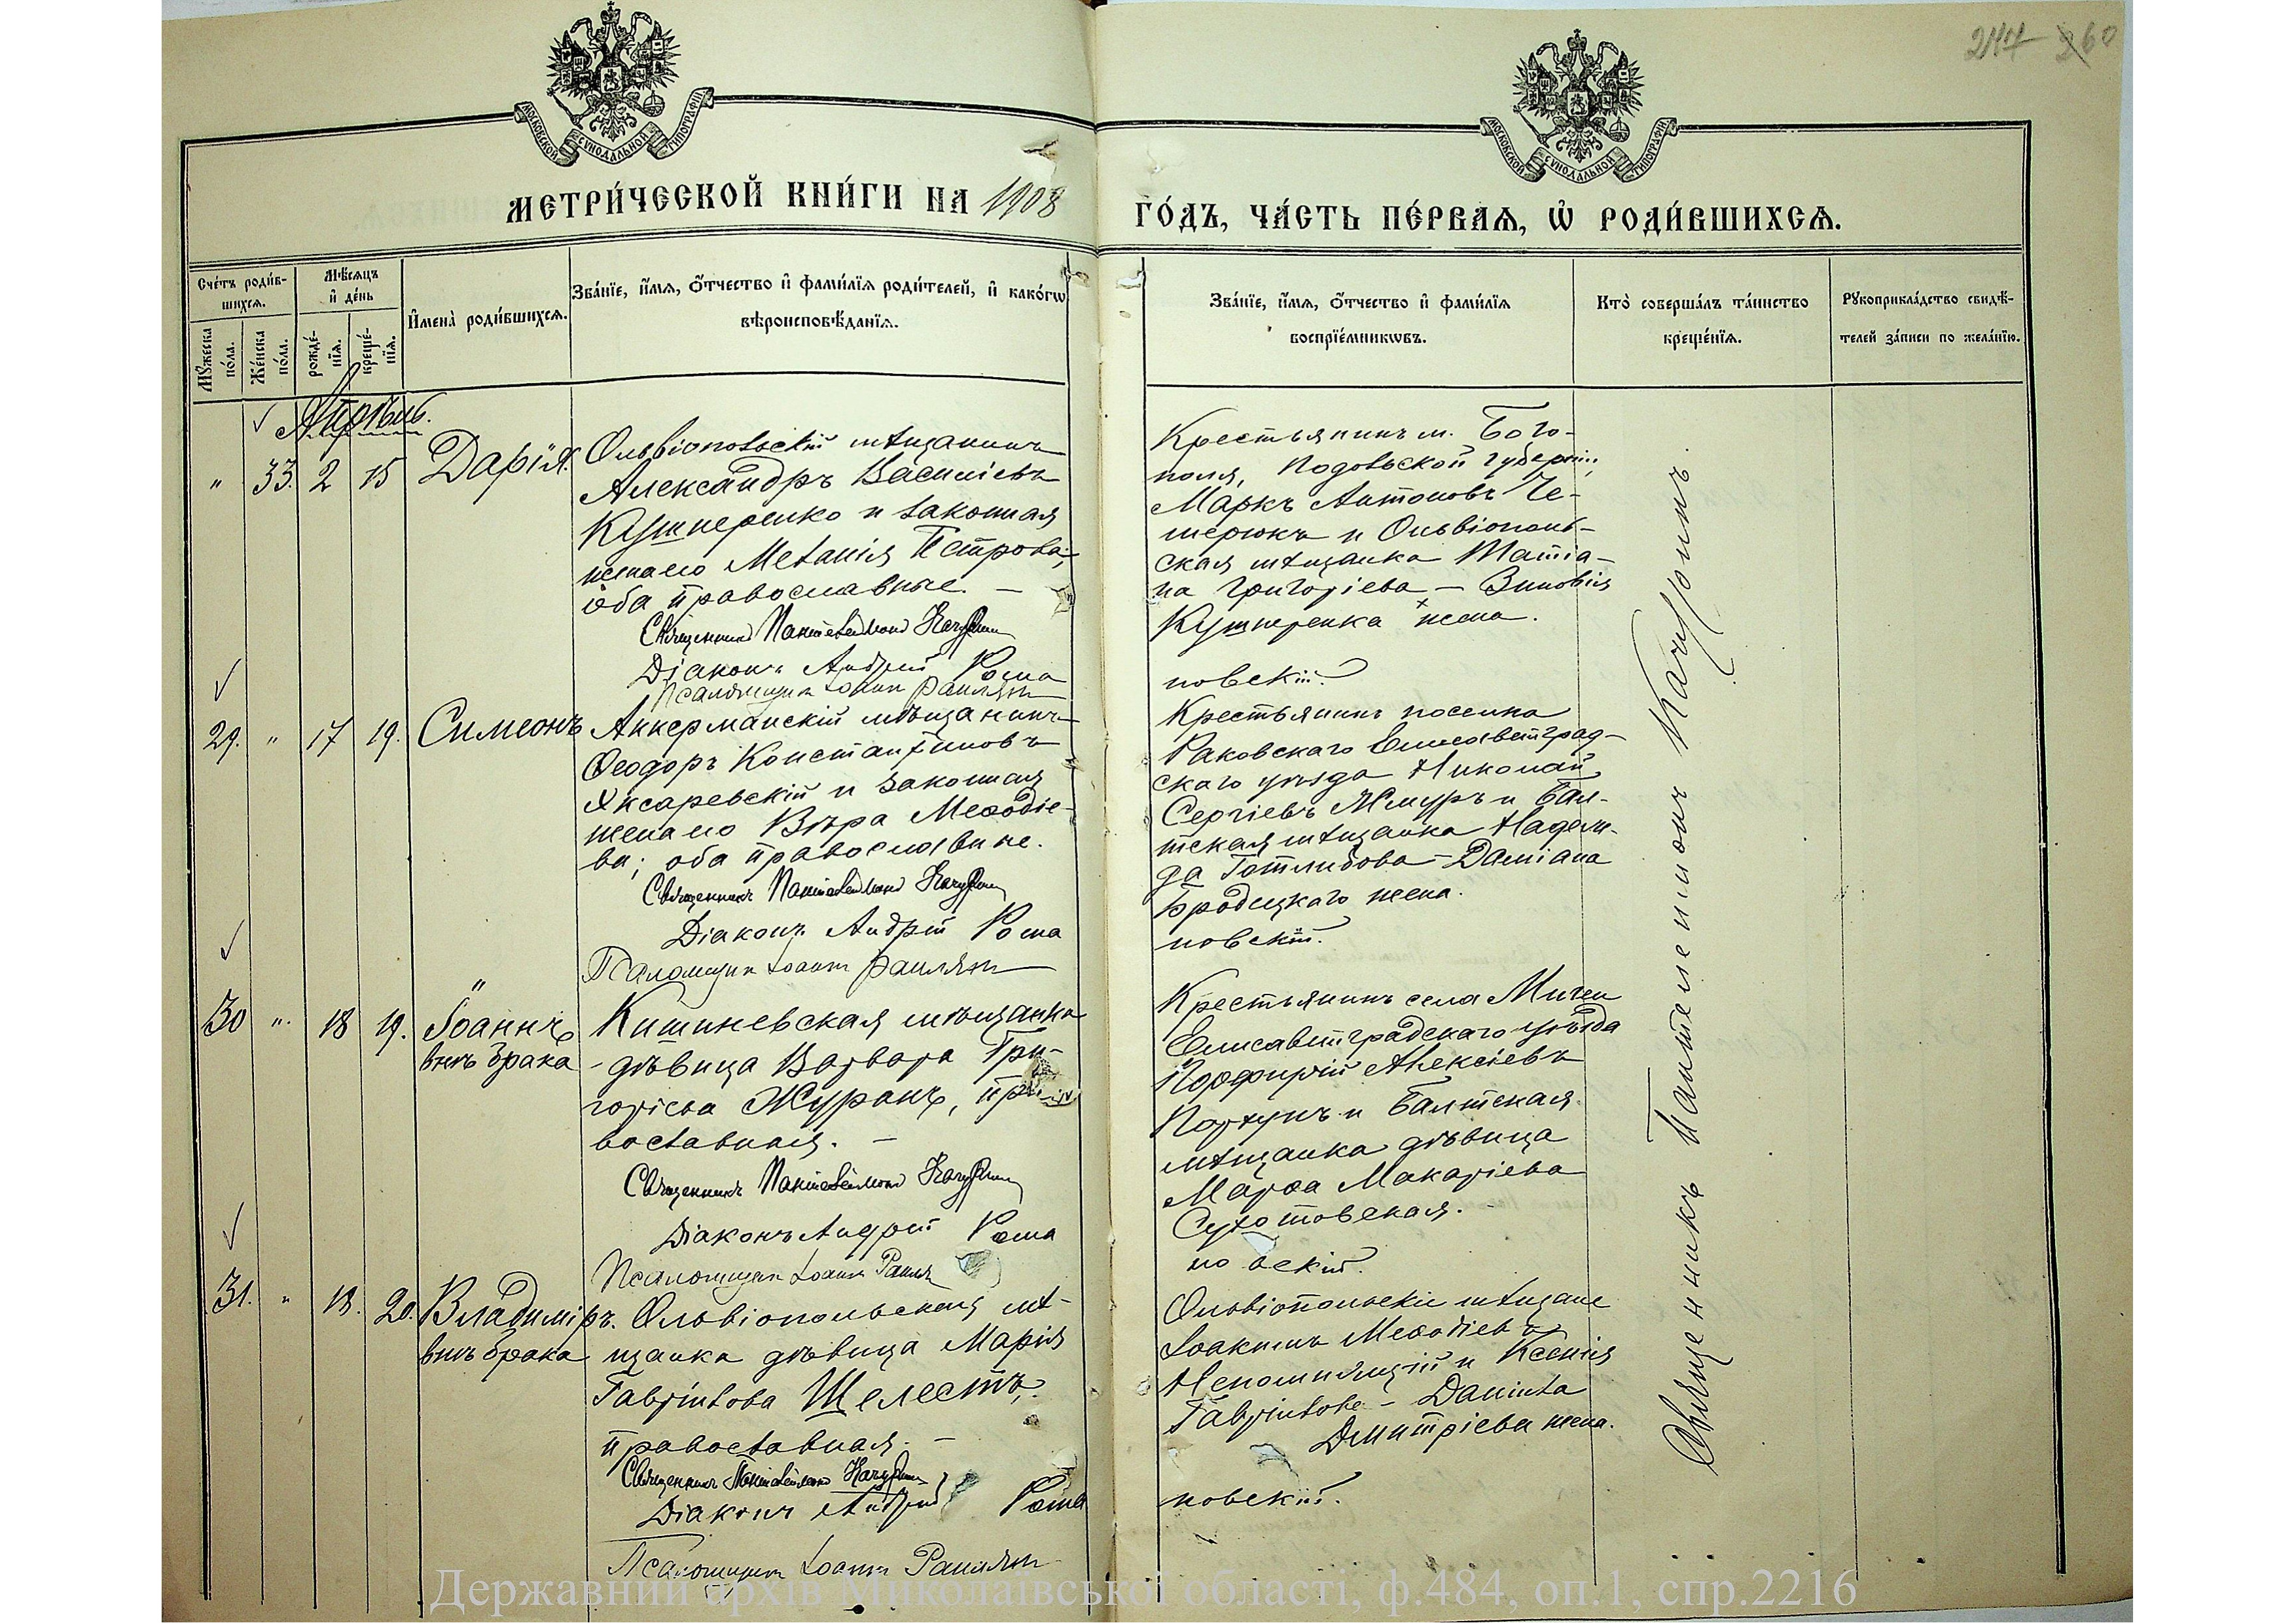 244 260
МОСКОВСКОЙ СѴНОДАЛЬНОЙ ТИПОГРАФІИ
МОСКОВСКОЙ СѴНОДАЛЬНОЙ ТИПОГРАФІИ
МЕТРИ́ЧЕСКОЙ КНИ́ГИ НА 1908
ГО́ДЪ, ЧА́СТЬ ПЕ́РВАЯ, Ѡ҆ РОДИ́ВШИХСЯ.
Сче́тъ роди́в-
шихся.
Мꙋ́жеска по́ла.
Же́нска по́ла.
Мѣ́сяцъ
и҆ де́нь
рожде́-
нїя.
креще́-
нїя.
И҆мена̀ роди́вшихся.
Зва́нїе, и҆́мя, ѻ҆́тчество и҆ фами́лїя роди́телей, и҆ како́гѡ
вѣроисповѣ́данїя.
Зва́нїе, и҆́мя, ѻ҆́тчество и҆ фами́лїя
воспрїе́мникѡвъ.
Кто̀ соверша́лъ та́инство
креще́нїя.
Рꙋкоприкла́дство свидѣ́-
телей за́писи по жела́нїю.
Апрѣль.
" 33. 2 15 Дарія.
Ольвіопольскій мѣщанинъ
Александръ Василіевъ
Кушнеренко и законная
жена его Меланія Петрова;
оба православные. —
Священникъ Пантелеимонъ
Діаконъ Андрей Рома
Псаломщик Іоанн
Крестьянинъ м. Бого-
поля, Подольской губерніи,
Маркъ Антоновъ Че-
мерюкъ и Ольвіополь-
ская мѣщанка Татіа-
на Григорьева — Зиновія
Кушнеренка жена.
новскій.
29. " 17 19. Симеонъ
Аккерманскій мѣщанинъ
Ѳеодоръ Константиновъ
Яксаревскій и законная
жена его Вѣра Меѳодіе-
ва; оба православные.
Священникъ Пантелеимонъ
Діаконъ Андрей Рома
Псаломщик Іоанн
Крестьянинъ поселка
Раковскаго Елисаветград-
скаго уѣзда Николай
Сергіевъ Жмуръ и Бал-
тская мѣщанка Надеж-
да Готлибова — Даміана
Бродецкаго жена.
новскій.
30 ". 18 19. Іоаннъ
внѣ брака
Кишиневская мѣщанка
- дѣвица Варвара Гри-
горіева Журанъ, пра-
вославная. —
Священникъ Пантелеимонъ
Діаконъ Андрей Рома
Псаломщик Іоанн
Крестьянинъ села Мигеи
Елисаветградскаго уѣзда
Порфирій Алексіевъ
и Балтская
мѣщанка дѣвица
Марѳа Макаріева
новскій.
31. " 18. 20. Владиміръ.
внѣ брака
Ольвіопольская мѣ-
щанка дѣвица Марія
Гавріилова Шелестъ,
православная. —
Священникъ Пантелеимонъ
Діаконъ Андрей Рома
Псаломщик Іоанн
Ольвіопольскіе мѣщане
Іоакимъ Меѳодіевъ
Непомнящій и Ксенія
Гавріилова — Даніила
Дмитріева жена.
новскій.
Священникъ Пантелеимонъ
Державний архів Миколаївської області, ф.484, оп.1, спр.2216